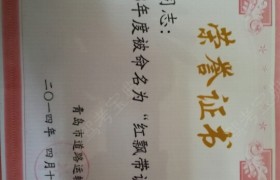 荣誉证书
同志：
年度被命名为“红飘带
青岛市道路运输
二〇一四年四月十